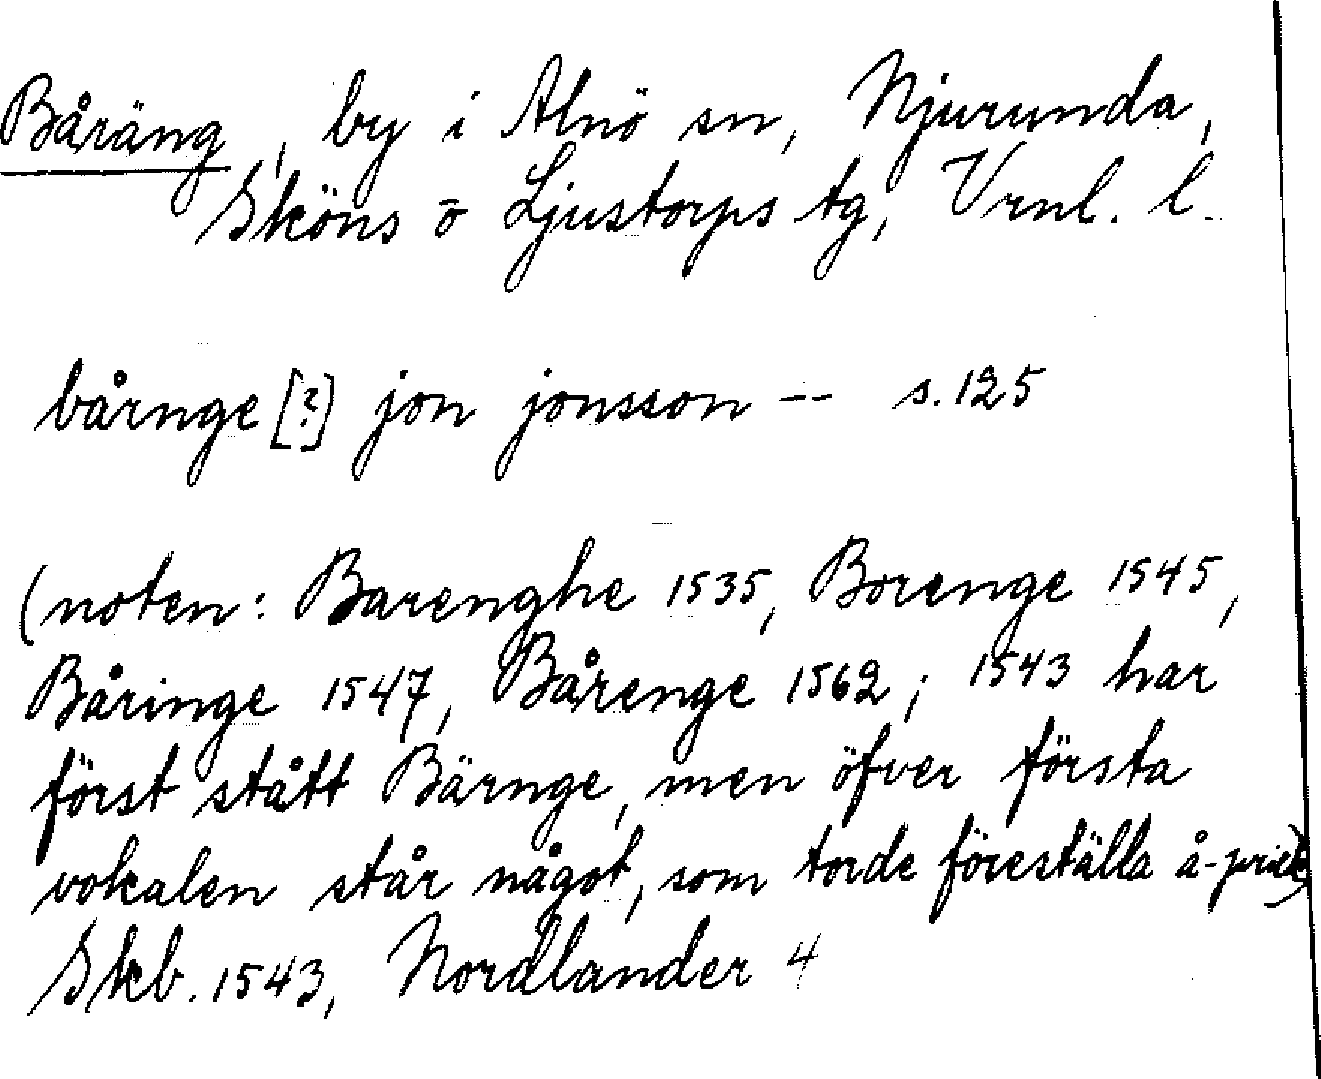 Båräng, by i Alnö sn, Njurunda,
Sköns o Ljustorps tg, Vrnl. l.
bårnge [?] jon jonsson -- s. 125
(noten: Barenghe 1535, Borenge 1545,
Båringe 1547, Bårenge 1562; 1543 har
först stått Bärnge, men öfver första
vokalen står något, som torde föreställa å-prick)
Skb. 1543, Nordlander 4